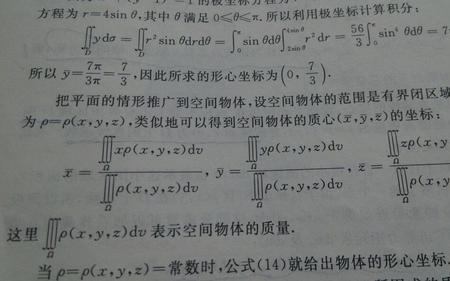 方程为 r=4sin θ,其中 θ 满足 0≤θ≤π. 所以利用极坐标计算积分:
∬_D ydσ = ∬_D r² sin θdrdθ = ∫_0^π sin θdθ ∫_{2sin θ}^{4sin θ} r² dr = 56/3 ∫_0^π sin⁴ θdθ = 7
所以 ȳ = 7π/3π = 7/3, 因此所求的形心坐标为 (0, 7/3).
把平面的情形推广到空间物体,设空间物体的范围是有界闭区域
为 ρ=ρ(x,y,z),类似地可以得到空间物体的质心(x̄,ȳ,z̄)的坐标:
x̄ = ∭_Ω xρ(x,y,z)dv / ∭_Ω ρ(x,y,z)dv , ȳ = ∭_Ω yρ(x,y,z)dv / ∭_Ω ρ(x,y,z)dv , z̄ = ∭_Ω zρ(x,y / ∭_Ω ρ(x,y
这里 ∭_Ω ρ(x,y,z)dv 表示空间物体的质量.
当 ρ=ρ(x,y,z)=常数时,公式(14)就给出物体的形心坐标.